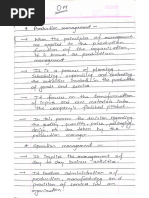 OM
* Production management -
→ When the principles of management
are applied to the production
function of the organisation,
it is known as production
management.
→ It is a process of planning
scheduling supervising and controlling
the activities involved in production
of goods and service.
→ It focuses on the transformation
of inputs and raw materials into
the company's finished product.
→ In this process the decision regarding
the quality, quantity, price, packaging,
design etc are taken by the
production manager.
* Operation management -
→ It implies the management of
day to day business activities.
→ It involves administration of
production manufacturing and
provision of services in an
organisation.